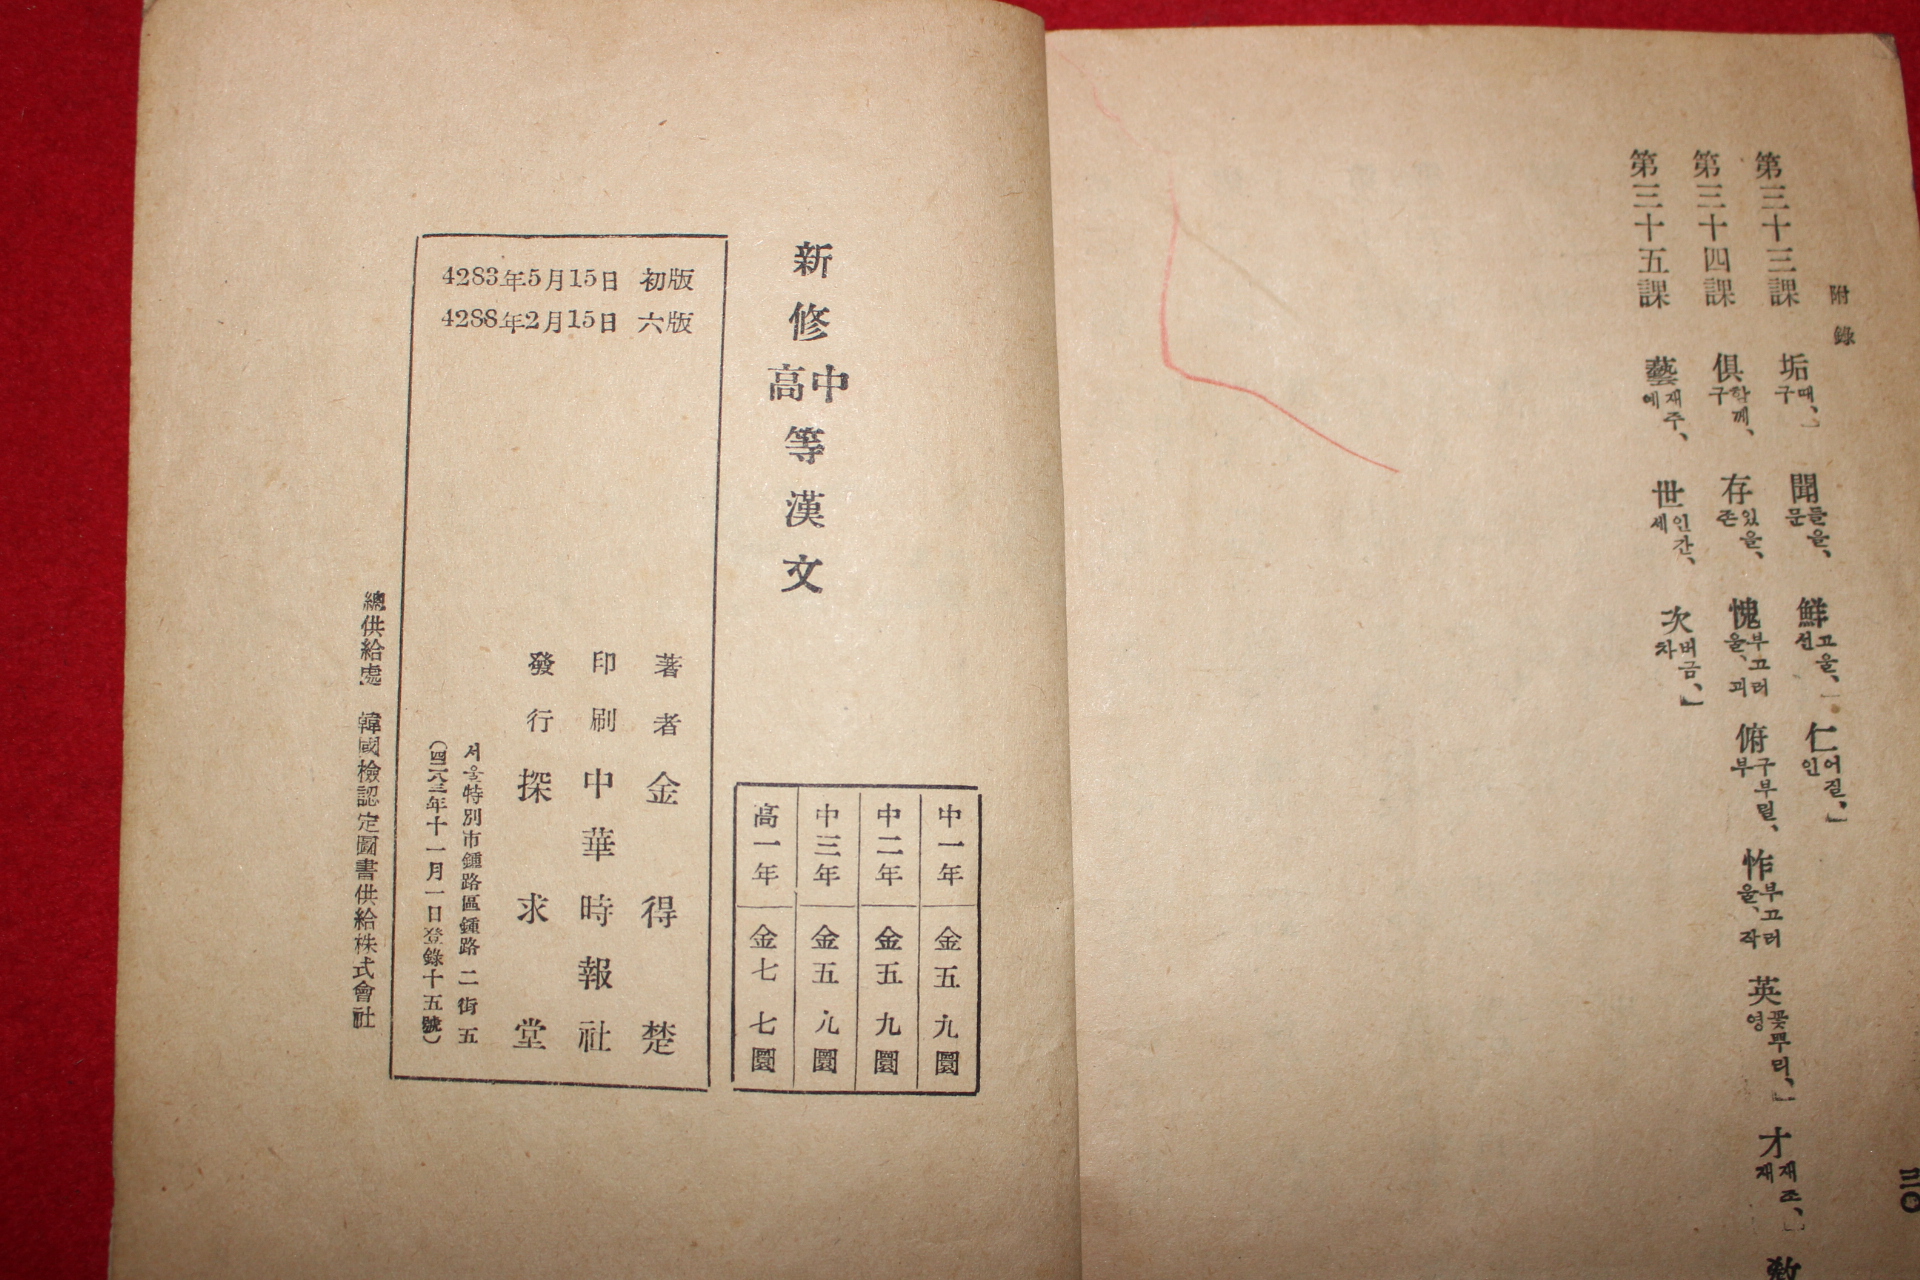 附錄
第三十三課 垢 때、구 聞 들을、문 鮮 고울、선 仁 어질、인」
第三十四課 俱 함께、구 存 있을、존 愧 부끄러울、괴 俯 구부릴、부 怍 부끄러울、작 英 꽃뿌리、영」 才 재조、재
第三十五課 藝 재주、예 世 인간、세 次 버금、차」
新修中高等漢文
中一年 金五九圜
中二年 金五九圜
中三年 金五九圜
高一年 金七七圜
4283年5月15日 初版
4288年2月15日 六版
著者 金得楚
印刷 中華時報社
發行 探求堂
서울特別市鍾路區鍾路二街五
(四二八三年十一月一日登錄十五號)
總供給處 韓國檢認定圖書供給株式會社